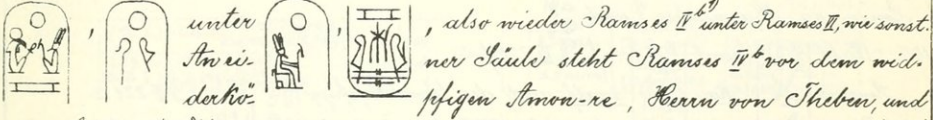 unter , also wieder Ramses IV b) unter Ramses II, wie sonst.
An einer Säule steht Ramses IV b vor dem wid-
derköpfigen Amon-re, Herrn von Theben, und